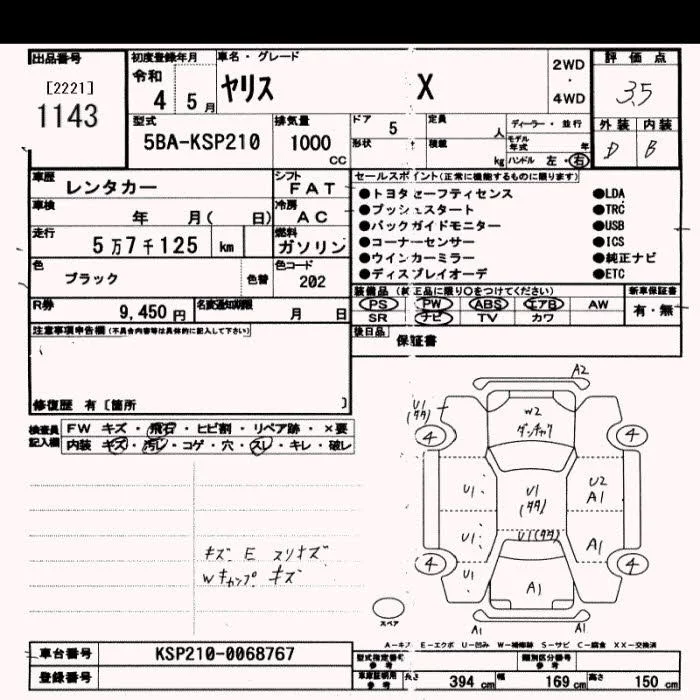 出品番号 初度登録年月 車名・グレード 評価点
[2221] 令和 ヤリス X 2WD 3.5
1143 4 5月 ・ 4WD
型式 排気量 ドア 5 定員 人 ディーラー・並行 外装 内装
5BA-KSP210 1000 cc 形状 積載 kg モデル年式 年 D B
ハンドル 左・右
車歴 レンタカー シフト FAT セールスポイント(正常に機能するものに限ります)
車検 年 月( 日) 冷房 AC ●トヨタセーフティセンス ●LDA
●プッシュスタート ●TRC
走行 5万7千125 km 燃料 ガソリン ●バックガイドモニター ●USB
●コーナーセンサー ●ICS
色 ブラック 色替 色コード 202 ●ウインカーミラー ●純正ナビ
●ディスプレイオーデ ●ETC
R券 9,450円 名変通知期限 月 日 装備品(純正品に限り○をつけてください) 新車保証書
PS PW ABS エアB AW 有・無
SR ナビ TV カワ
注意事項申告欄(不具合内容等は具体的に記入して下さい) 後日品 保証書
修復歴 有〔箇所 〕
検査員記入欄 FW キズ・飛石・ヒビ割・リペア跡・×要
内装 キズ・汚レ・コゲ・穴・スレ・キレ・破レ
A2
U1
(タタ)
W2
4 4
U1 U1 U2
(タタ) A1
U1 U1(タタ) A1
4 4
U1 A1
A1 A1
スペア
キズ E スリキズ
Wキャップ キズ
A-キズ E-エクボ U-凹み W-補修跡 S-サビ C-腐食 XX-交換済
車台番号 KSP210-0068767 型式指定番号 参考 類別区分番号 参考
登録番号 車庫証明用 参考 長さ 394 cm 幅 169 cm 高さ 150 cm